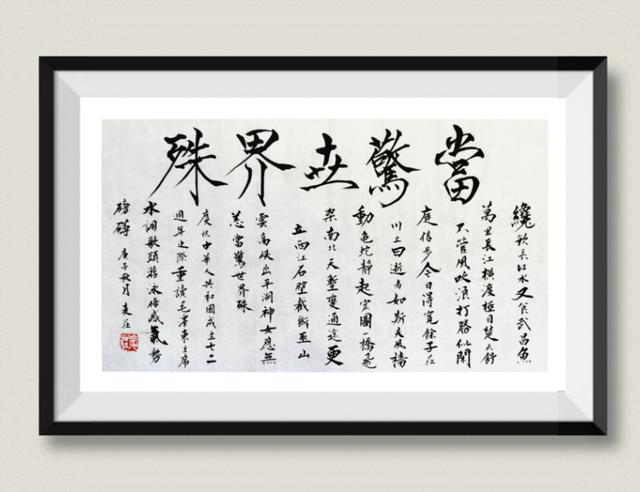 當驚世界殊
纔飲長江水又食武昌魚
萬里長江橫渡極目楚天舒
不管風吹浪打勝似閑
庭信步今日得寬餘子在
川上曰逝者如斯夫風檣
動龜蛇靜起宏圖一橋飛
架南北天塹變通途更
立西江石壁截斷巫山
雲高峽出平湖神女應無
恙當驚世界殊
慶祝中華人共和國成立七十二
週年之際重讀毛澤東主席
水調歌頭游泳倍感氣勢
磅礴 庚子秋月